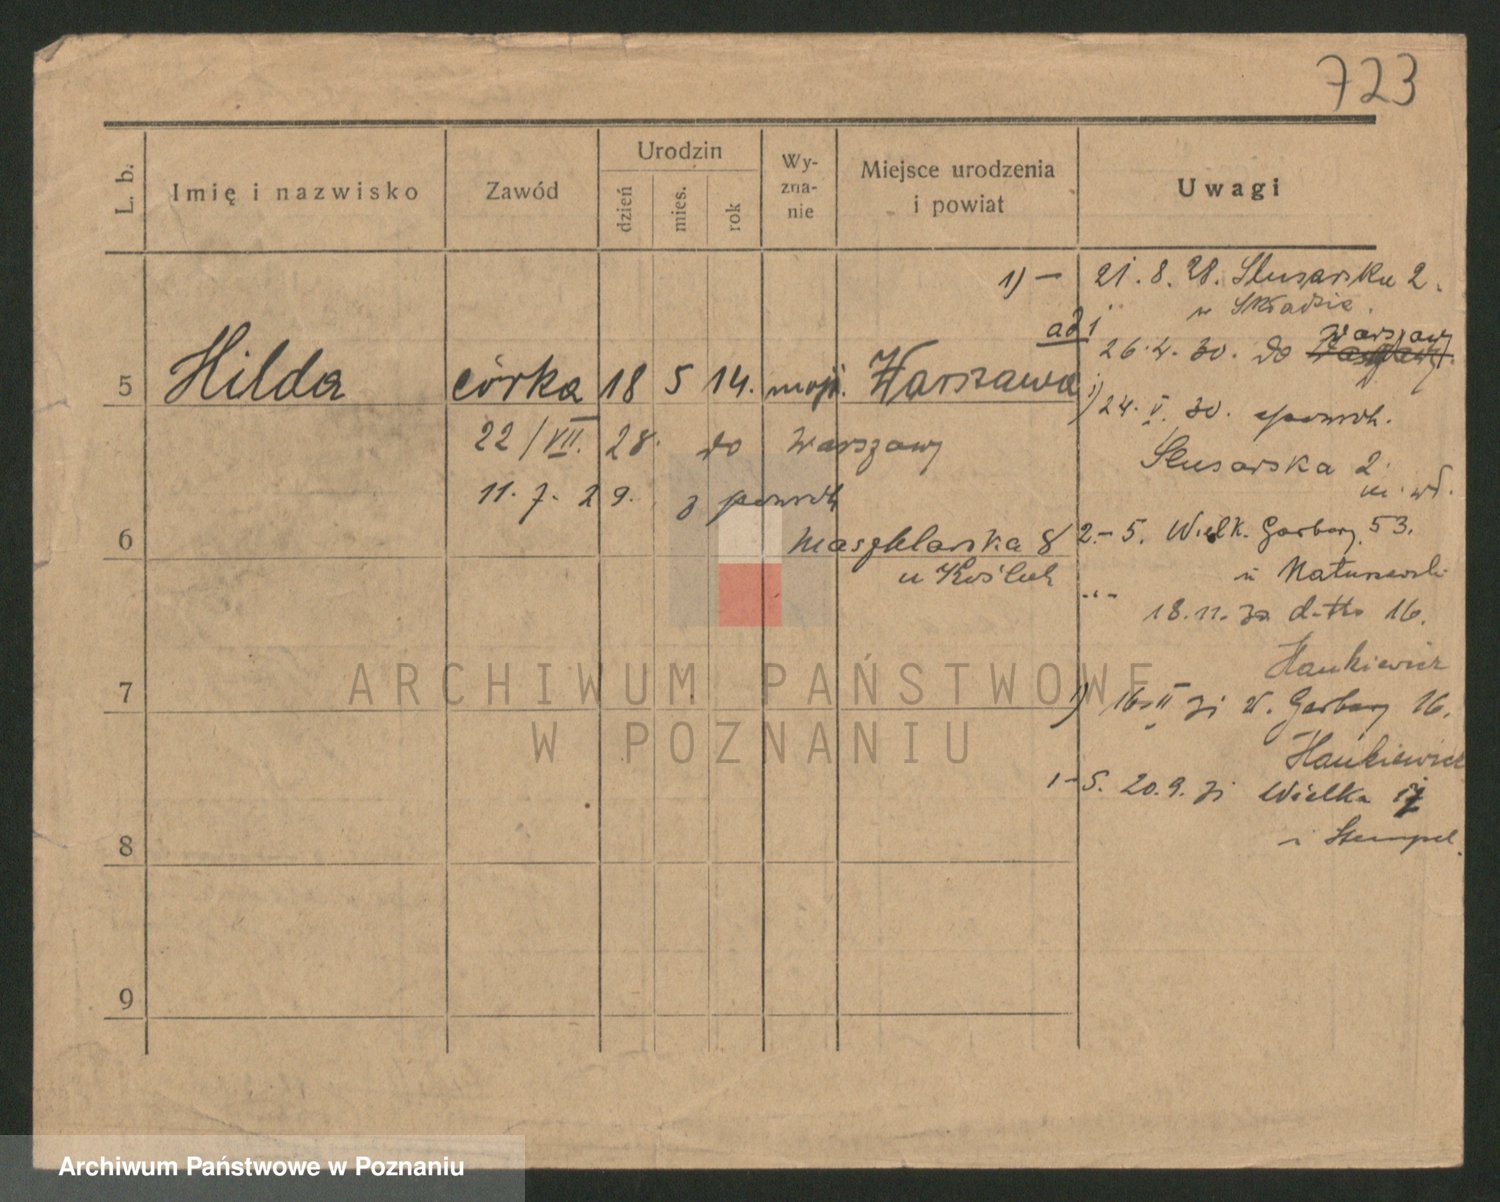 723
L. b.
Imię i nazwisko
Zawód
Urodzin
dzień
mies.
rok
Wy-
zna-
nie
Miejsce urodzenia
i powiat
Uwagi
1) — 21. 8. 28. Slusarska 2.
u Składzie.
ad 1
26. 4. 30. do Warszawy
5 Hilda córka 18 5 14. mojż. Warszawa
1) 24. V. 30. spowrot.
22/VII. 28. do Warszawy
Slusarska 2.
11. 7. 29. z powrot.
6
2.-5. Wielk. Garbary 53.
8
u
18. 11. 30. d-tto 16.
Hankiewicz
7
1) 16 II 31 W. Garbary 16.
Hankiewicz
1-5. 20. 9. 31 Wielka 17
Stempel.
8
9
ARCHIWUM PAŃSTWOWE
W POZNANIU
Archiwum Państwowe w Poznaniu